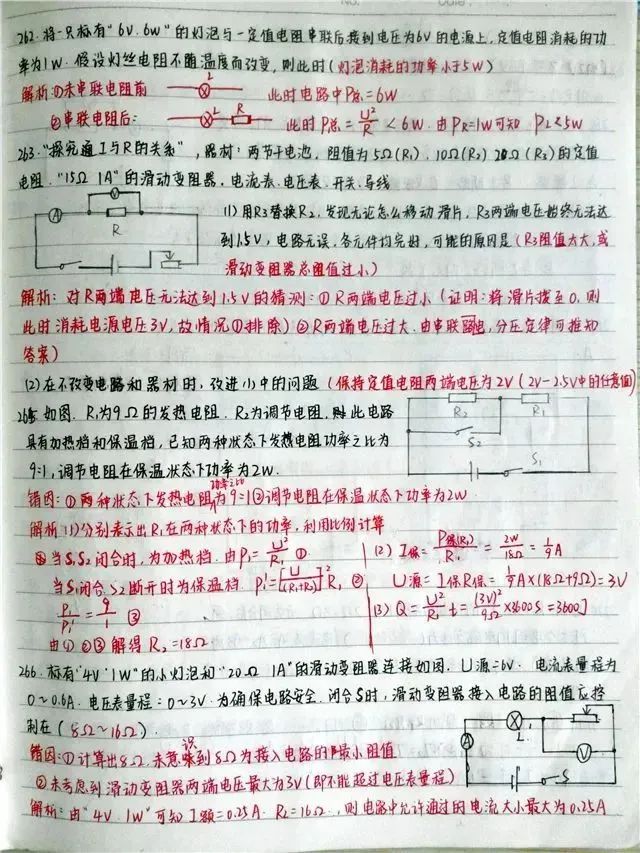 No.
Date
262. 将一只标有“6V.6W”的灯泡与一定值电阻串联后接到电压为6V的电源上,定值电阻消耗的功
率为1W.假设灯丝电阻不随温度而改变,则此时(灯泡消耗的功率小于5W)
解析:①未串联电阻前 L 此时电路中P总=6W
②串联电阻后: L R 此时P总=U²/R<6W.由PR=1W可知 PL<5W
263.“探究通I与R的关系”,器材:两节干电池,阻值为5Ω(R₁).10Ω(R₂) 20Ω(R₃)的定值
电阻.“15Ω 1A”的滑动变阻器,电流表.电压表.开关.导线
A V R
(1)用R3替换R2,发现无论怎么移动滑片,R3两端电压始终无法达
到1.5V,电路无误,各元件均完好,可能的原因是(R3阻值太大,或
滑动变阻器总阻值过小)
解析:对R两端电压无法达到1.5V的猜测:①R两端电压过小(证明:将滑片拨至0,则
此时消耗电源电压3V,故情况①排除)②R两端电压过大.由串联电,分压定律可推知
答案)
(2)在不改变电路和器材时,改进(1)中的问题(保持定值电阻两端电压为2V(2V-2.5V中的任意值)
如图.R₁为9Ω的发热电阻.R₂为调节电阻,此电路
具有加热档和保温档,已知两种状态下发热电阻功率之比为
9:1,调节电阻在保温状态下功率为2W.
R₂ R₁ S₂ S₁
错因:①两种状态下发热电阻功率之比为9:1②调节电阻在保温状态下功率为2W
解析(1)分别表示出R₁在两种状态下的功率,利用比例计算
当S₁S₂闭合时,为加热档.由P₁=U²/R₁ ①
当S₁闭合S₂断开时为保温档 P₁'=[U/(R₁+R₂)]²R₁ ②
P₁/P₁'=9/1 ③
由①②③解得R₂=18Ω
(2) I保=P保(R₂)/R₁=2W/18Ω=1/9A
U源=I保R保=1/9A×(18Ω+9Ω)=3V
(3) Q=U²/R₁t=(3V)²/9Ω×3600S=3600J
266.标有“4V 1W”的小灯泡和“20Ω 1A”的滑动变阻器连接如图.U源=6V.电流表量程为
0~0.6A.电压表量程:0~3V.为确保电路安全.闭合S时,滑动变阻器接入电路的阻值应控
制在(8Ω~16Ω)
错因:①计算出8Ω.未意识到8Ω为接入电路的最小阻值
②未考虑到滑动变阻器两端电压最大为3V(即不能超过电压表量程)
A L V S
解析:由“4V 1W”可知I额=0.25A.RL=16Ω,则电路中允许通过的电流大小最大为0.25A